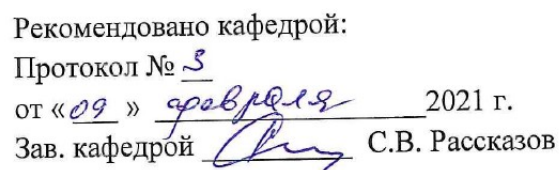 Рекомендовано кафедрой:
Протокол № 3
от «09 » февраля 2021 г.
Зав. кафедрой С.В. Рассказов